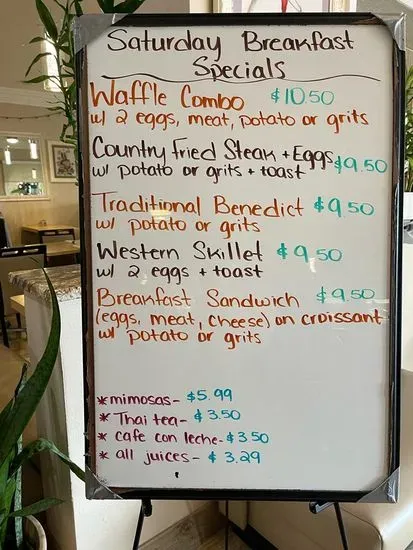 Saturday Breakfast
Specials
Waffle Combo $10.50
w/ 2 eggs, meat, potato or grits
Country Fried Steak + Eggs $9.50
w/ potato or grits + toast
Traditional Benedict $9.50
w/ potato or grits
Western Skillet $9.50
w/ 2 eggs + toast
Breakfast Sandwich $9.50
(eggs, meat, cheese) on croissant
w/ potato or grits
* mimosas - $5.99
* Thai tea - $3.50
* cafe con leche - $3.50
* all juices - $3.29